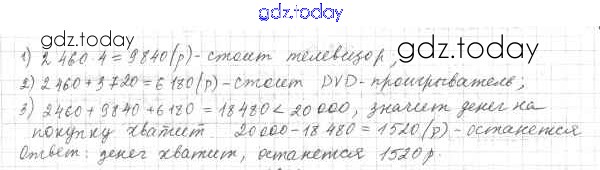 gdz.today
gdz.today gdz.today
1) 2 460·4 = 9840 (р) - стоит телевизор;
2) 2460 + 3720 = 6180 (р) - стоит DVD-проигрыватель;
3) 2460 + 9840 + 6180 = 18480 < 20000, значит денег на
покупку хватит. 20000 - 18480 = 1520 (р) - останется
Ответ: денег хватит, останется 1520 р.
gdz.today gdz.today